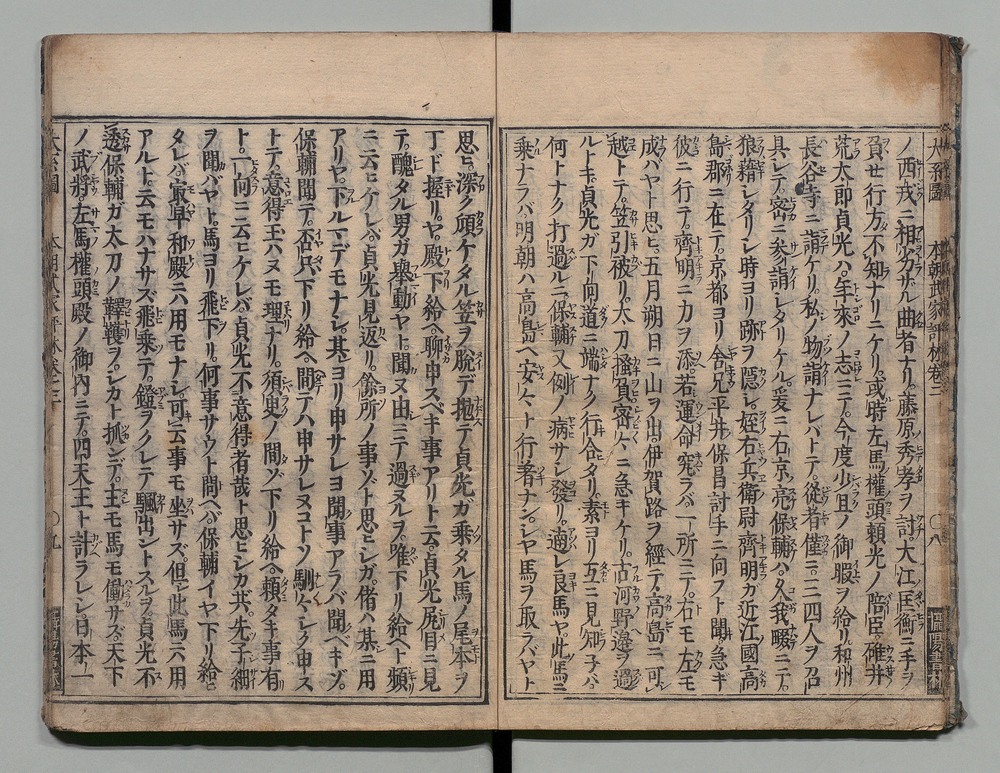 ノ西戎ニ相劣ザル曲者ナリ。藤原秀孝ヲ討。大江匡衡ニ手ヲ
負せ行方不知ナリニケリ。或時左馬權頭賴光ノ陪臣。碓井
荒太郎貞光ハ。年來ノ志ニテ。今度少且ノ御暇ヲ給リ。和州
長谷寺ニ詣ケリ。私ノ物詣ナレバトテ。從者僅ニ三四人ヲ召
具レテ。密ニ參詣レタリケル。爰ニ右京亮保輔ハ。久我畷ニテ。
狼藉レタリレ時ヨリ跡ヲ隱レ。姪右兵衛尉齊明ガ近江國高
島郡ニ在テ。京都ヨリ舍兄平井保昌討手ニ向フト聞。急ギ
彼ニ行テ。齊明ニカヲ添。若運命究ラバ。一所ニテ。右モ左モ
成ハヤト思ヒ。五月朔日ニ山ヲ出。伊賀路ヲ經テ高島ニ可
越トテ。笠引被リ。大刀搔負密々ニ急キケリ。古河野邉ヲ過
ルトキ。貞光ガ下向道ニ端ナク行合タリ。素ヨリ互ニ見知子ハ。
何トナク打過ルニ保輔又例ノ病サレ發リ。適レ良馬ヤ。此馬ニ
乗ナラバ。明朝ハ高島ヘ安々ト行著ナン。レヤ馬ヲ取ラバヤト
本朝武家評林卷三
〇八
思ヒ。深ク頃ケタル笠ヲ脫デ抛テ貞光ガ乗タル馬ノ尾本ヲ
丁ド握リ。ヤ。殿下給ヘ。聊申スベキ事アリト云。貞光尻目ニ見
テ。醜タル男ガ擧動ヤト。聞ヌ由ニテ過ヌルヲ。唯下リ給ヘト頻
ニ云ヒケレバ。貞光見返リ。餘所ノ事ゾト思ヒレガ。偖ハ某ニ用
アリヤ。下ルマデモナレ。其ヨリ申サレヨ聞事アラバ聞ベキゾ。
保輔聞テ。否只下リ給ヘ。間テハ申サレヌコトソ馴々レク申ス
トテ。意得玉ハヌモ理ナリ。須臾ノ間ゾ下リ給ヘ。賴タキ事有
ト。一向ニ云ヒケレバ。貞光不意得者哉ト思ヒレカ共。先子細
ヲ聞バヤト馬ヨリ飛下リ。何事サウト問ヘハ。保輔イヤ下リ給ヒ
タレバ。最早和殿ニ用モナレ。可云事モ坐サズ。但此馬ニ用
アルト。云モハナサズ飛乗テ。鐙ヲクレテ驅出ントスルヲ。貞光不
透保輔ガ太刀ノ鞸鞍ヲ。レカト抓ンデ。王モ馬モ働サズ。天下
ノ武將。左馬權頭殿ノ御內ニテ。四天王ト計ラレレ。日本一
〇九